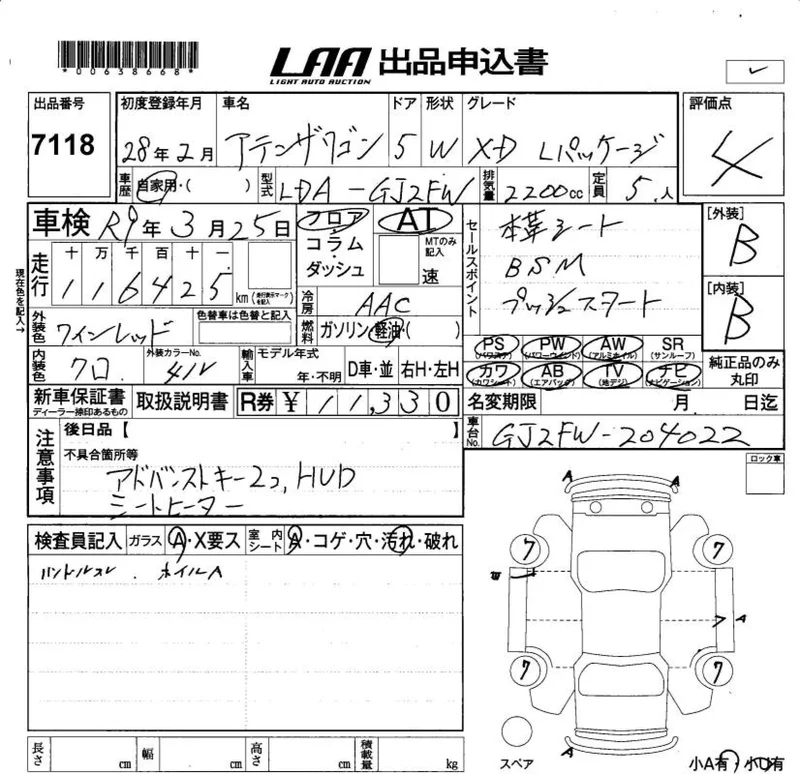 *00638668*
LAA LIGHT AUTO AUCTION 出品申込書
出品番号 7118
初度登録年月 28年2月
車名 アテンザワゴン
ドア 5
形状 W
グレード XD Lパッケージ
評価点 4
車歴 自家用・( )
型式 LDA-GJ2FW
排気量 2200cc
定員 5人
車検 R9年3月25日
フロア・コラム・ダッシュ
AT
MTのみ記入 速
セールスポイント
本革シート
BSM
プッシュスタート
[外装] B
[内装] B
現在色を記入→
走行 十 万 千 百 十 一
116425 km (走行表示マークを記入)
冷房 AAC
燃料 ガソリン・軽油・( )
外装色 ワインレッド
色替車は色替と記入
内装色 クロ
外装カラーNo. 41V
輸入車 モデル年式 年・不明 D車・並 右H・左H
PS (パワステ) PW (パワーウインド) AW (アルミホイル) SR (サンルーフ)
カワ (カワシート) AB (エアバック) TV (地デジ) ナビ (ナビゲーション)
純正品のみ丸印
新車保証書 ディーラー捺印あるもの
取扱説明書
R券 ¥11,330
名変期限 月 日迄
車台No. GJ2FW-204022
注意事項
後日品【 】
不具合箇所等
アドバンストキー2コ, HUD
シートヒーター
ロック車
検査員記入 ガラス A・X要ス 室内シート A・コゲ・穴・汚れ・破れ
ハンドルスレ ホイルA
A A
7 7
A
7 7
A
スペア
小A有・小U有
長さ cm 幅 cm 高さ cm 積載量 kg